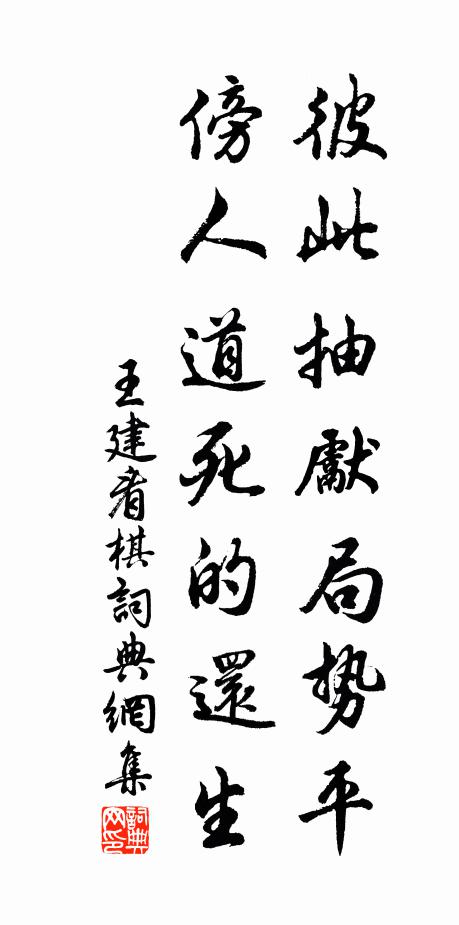 彼此抽獻局勢平
傍人道死的還生
王建看棋詞典網集
詞典网印